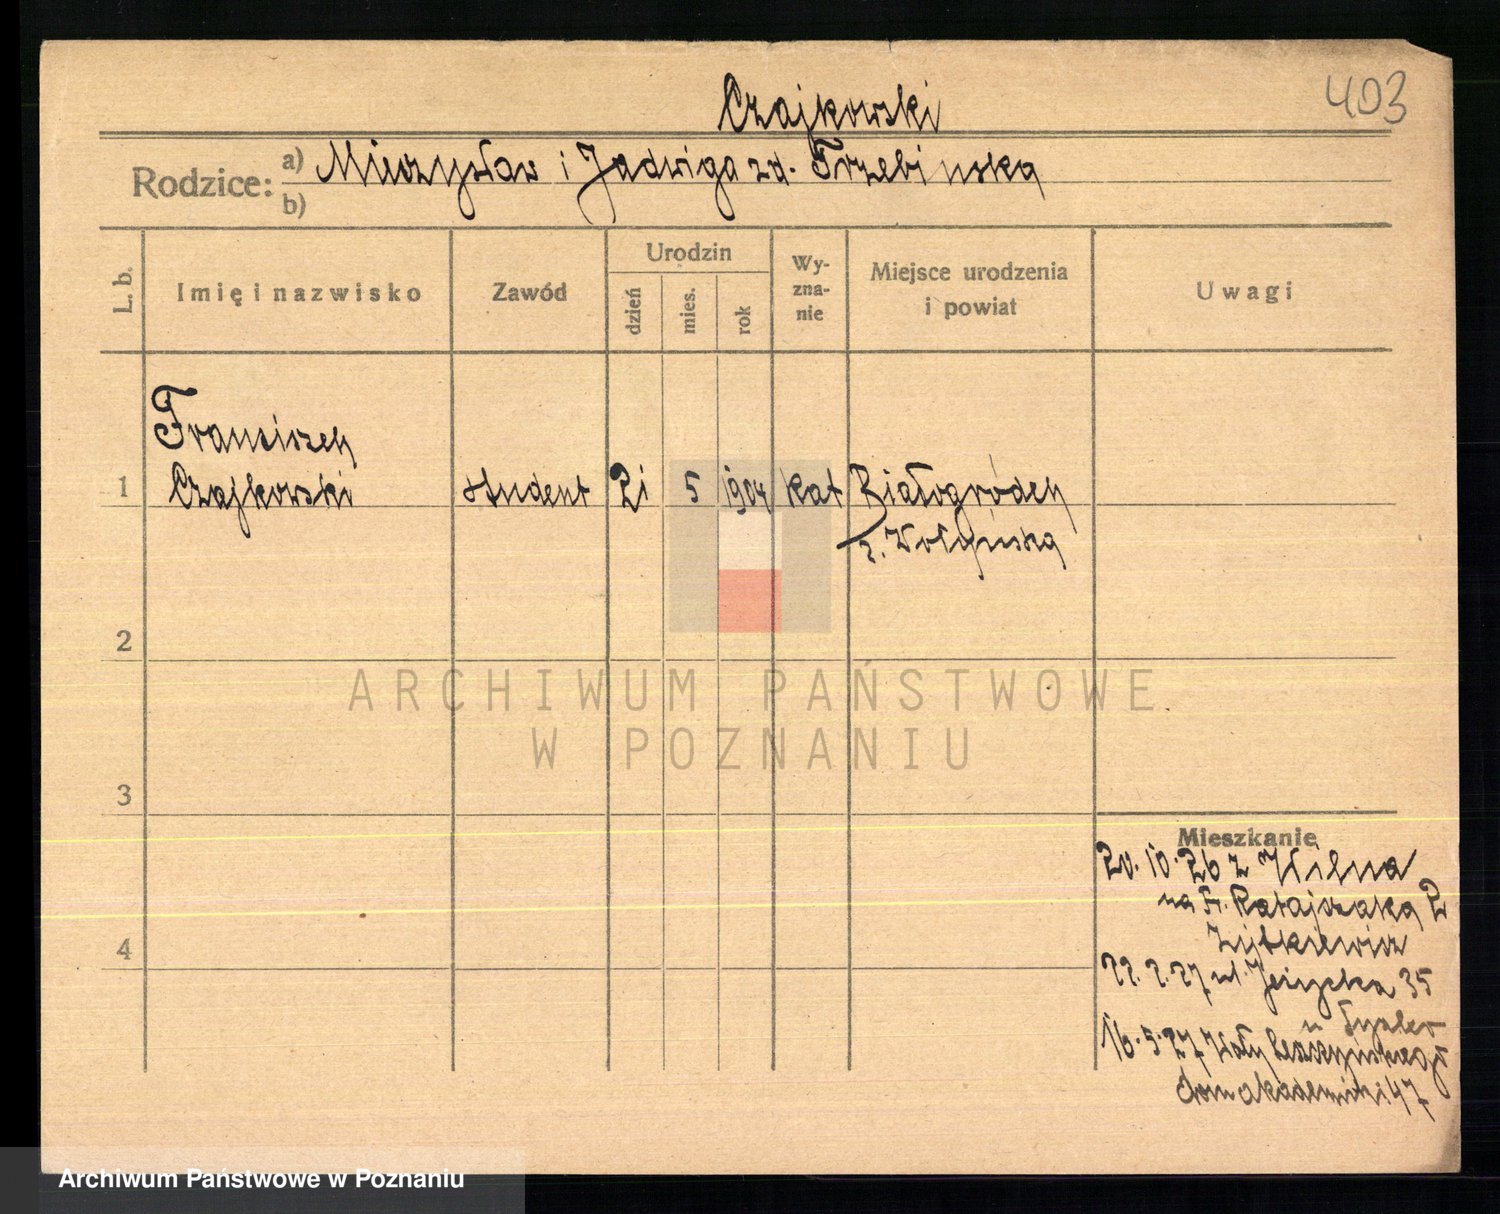 403
Czajkowski
Rodzice: a) Mieczysław i Jadwiga zd. Trzebinska
b)
L. b. Imię i nazwisko Zawód Urodzin dzień mies. rok Wyznanie Miejsce urodzenia i powiat Uwagi
Franciszek
1 Czajkowski student 21 5 1904 kat Białogródek
z. Wołyńska
2
ARCHIWUM PAŃSTWOWE
W POZNANIU
3
Mieszkanie
20. 10. 26 z Wilna
na Fr. Ratajczaka 2
4
22. 2. 27 ul. Jeżycka 35
16. 5. 27 Wały Leszczyńskiego
dom akademicki 47
Archiwum Państwowe w Poznaniu